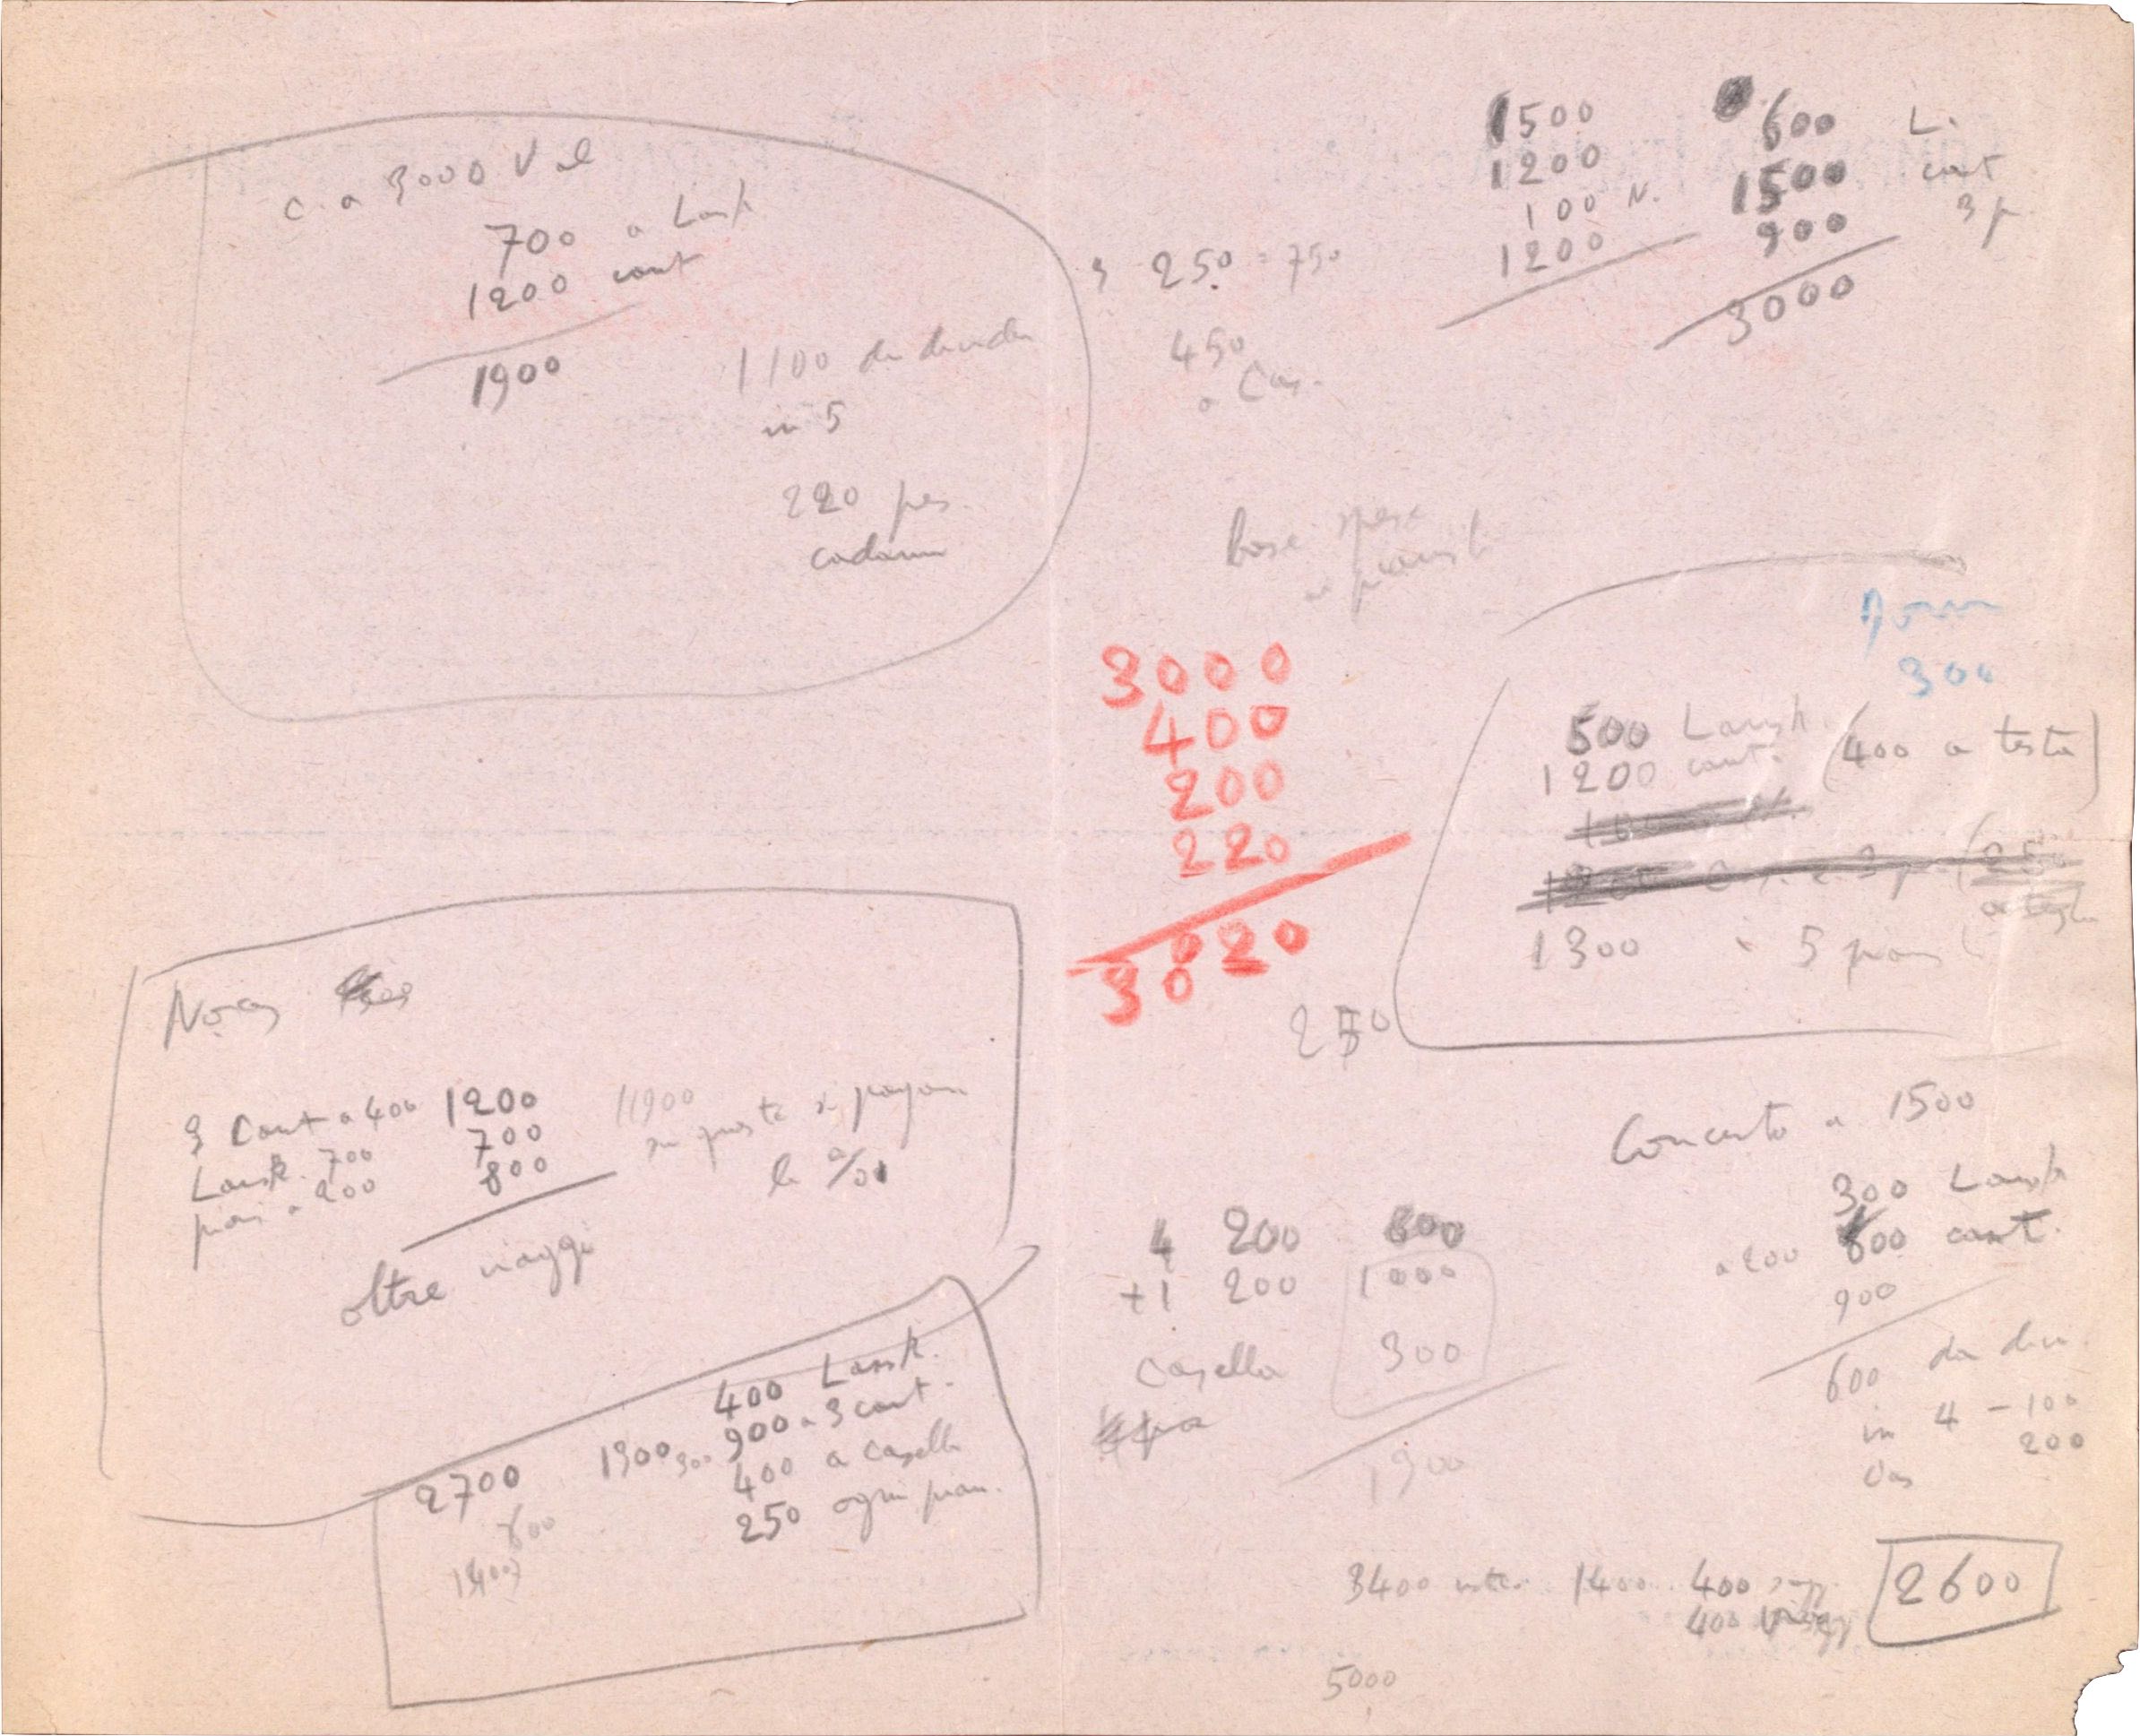 c. a 3000 Val
700 a Lansk
1200 cant
1900
1100 da dividere
in 5
220 pes.
cadauno
3 250 = 750
450
a Cas.
1500
1200
100 N.
1200
600 L.
1500 cant
900 3 p.
3000
base spese
3000
400
200
220
3820
250
300
500 Lansk. (400 a testa)
1200 cant.
1300 5 pian
3 Cant a 400 1200
Lansk. 700 700
pian a 200 800
1900
su queste si pagano
la %
oltre viaggi
400 Lansk.
1300 300 900 a 3 cant.
400 a Casella
250 ogni pian.
2700
800
4 200 800
+1 200 1000
Casella 300
1300
Concerto a 1500
300 Lansk
a 200 600 cant.
900
600 da div.
in 4 - 100
200
3400 1400 400
400
2600
5000